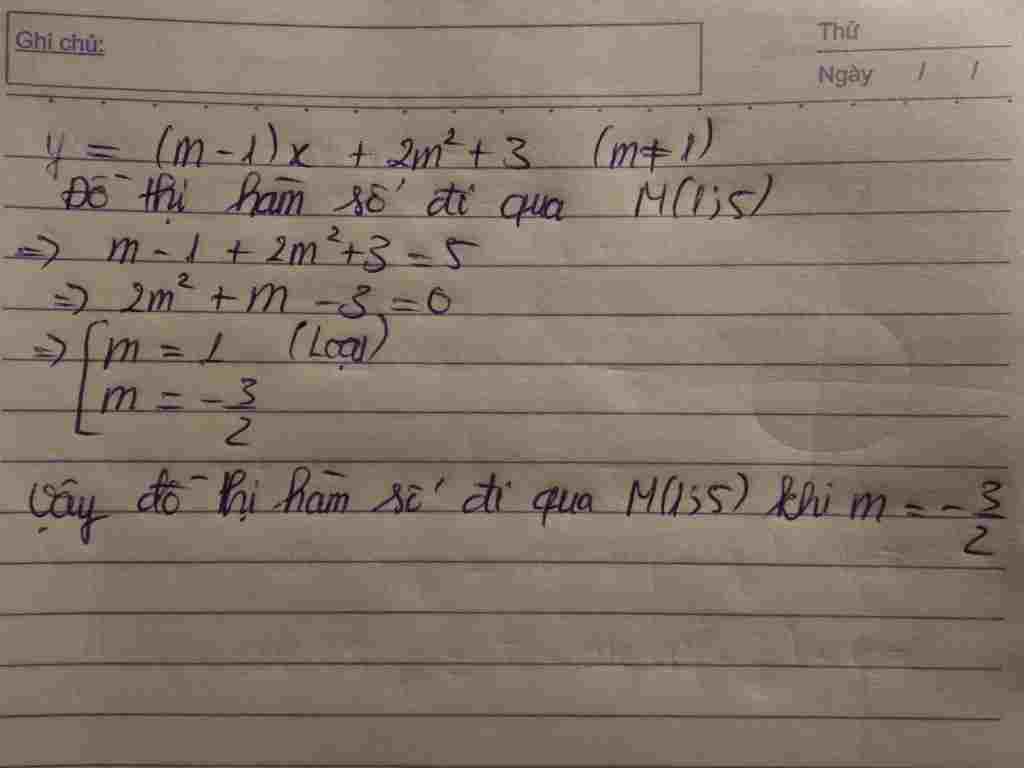 Ghi chú:
Thứ
Ngày / /
y = (m-1)x + 2m² + 3 (m≠1)
Đồ thị hàm số đi qua M(1;5)
=> m - 1 + 2m² + 3 = 5
=> 2m² + m - 3 = 0
=> [ m = 1 (Loại)
m = -3/2
Vậy đồ thị hàm số đi qua M(1;5) khi m = -3/2